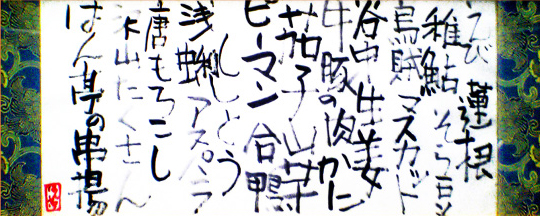 えび 蓮根
稚鮎 そら豆
烏賊 マスカット
谷中生姜
牛豚の肉 かに
茄子 山芋
ピーマン 合鴨
ししとう
浅蜊 アスパラ
唐もろこし
沢山 たくさん
はん亭の串揚